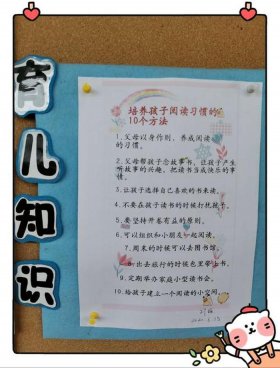 育儿知识
培养孩子阅读习惯的
10个方法
1.父母以身作则，养成阅读
的习惯。
2.父母帮孩子念故事书，让孩子产生
听故事的兴趣，把读书当成快乐的事
情。
3.让孩子选择自己喜欢的书来读。
4.不要在孩子读书的时候打扰孩子。
5.要坚持开卷有益的原则。
6.可以组织和小朋友一起阅读。
7.周末的时候可以去图书馆。
8.出去旅行的时候也里带上书。
9.定期举办家庭小型读书会。
10.给孩子建立一个阅读的小空间。